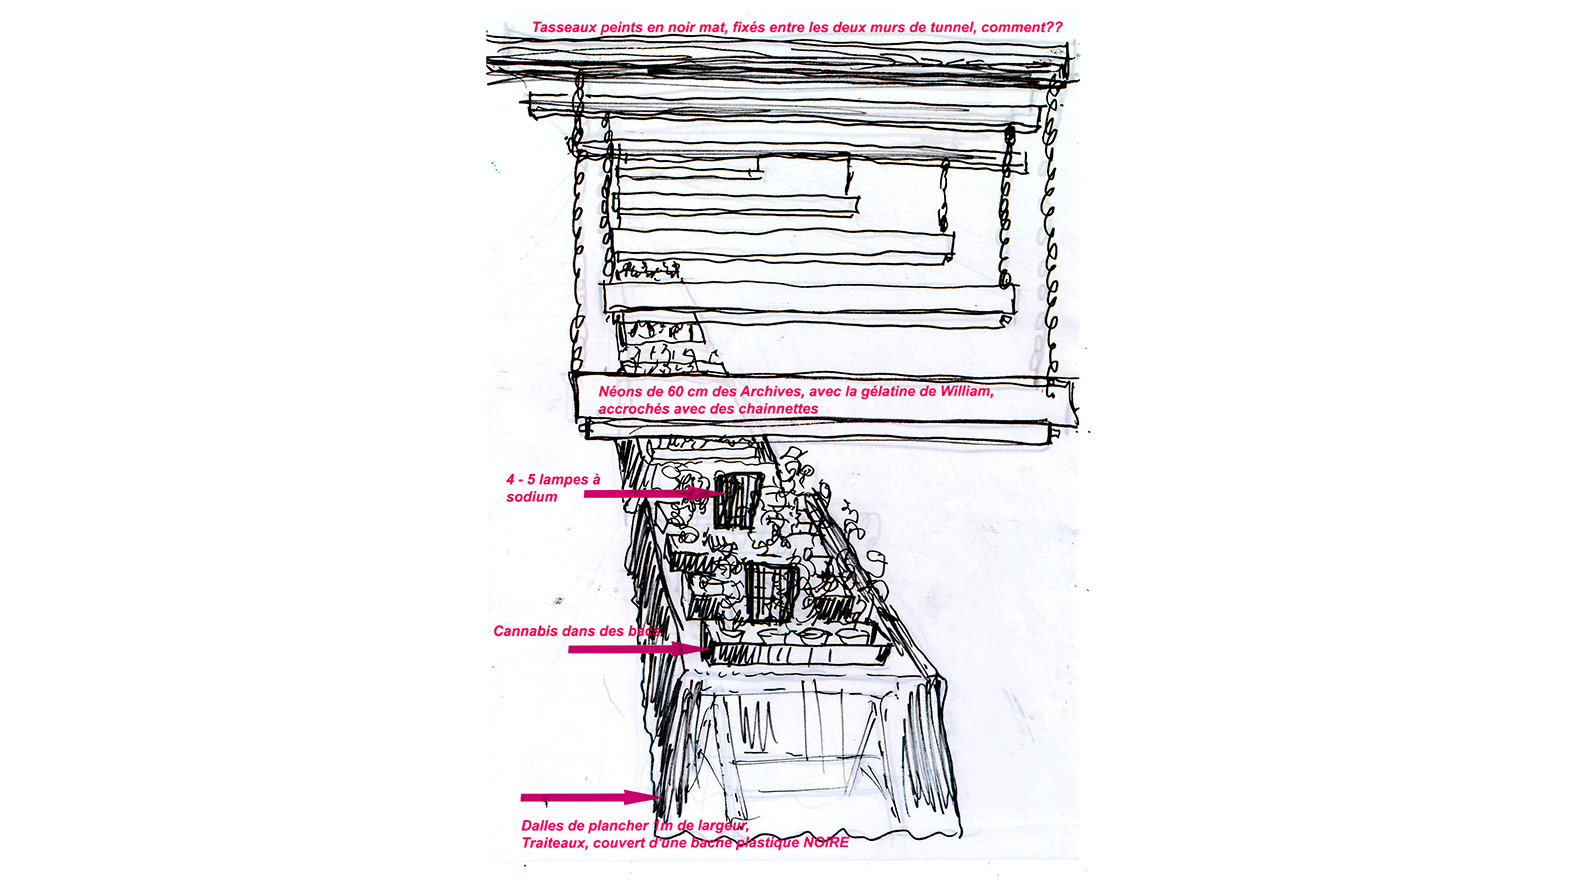 Tasseaux peints en noir mat, fixés entre les deux murs de tunnel, comment??
Néons de 60 cm des Archives, avec la gélatine de William,
accrochés avec des chainnettes
4 - 5 lampes à
sodium
Cannabis dans des bacs
Dalles de plancher 1m de largeur,
Traiteaux, couvert d'une bache plastique NOIRE